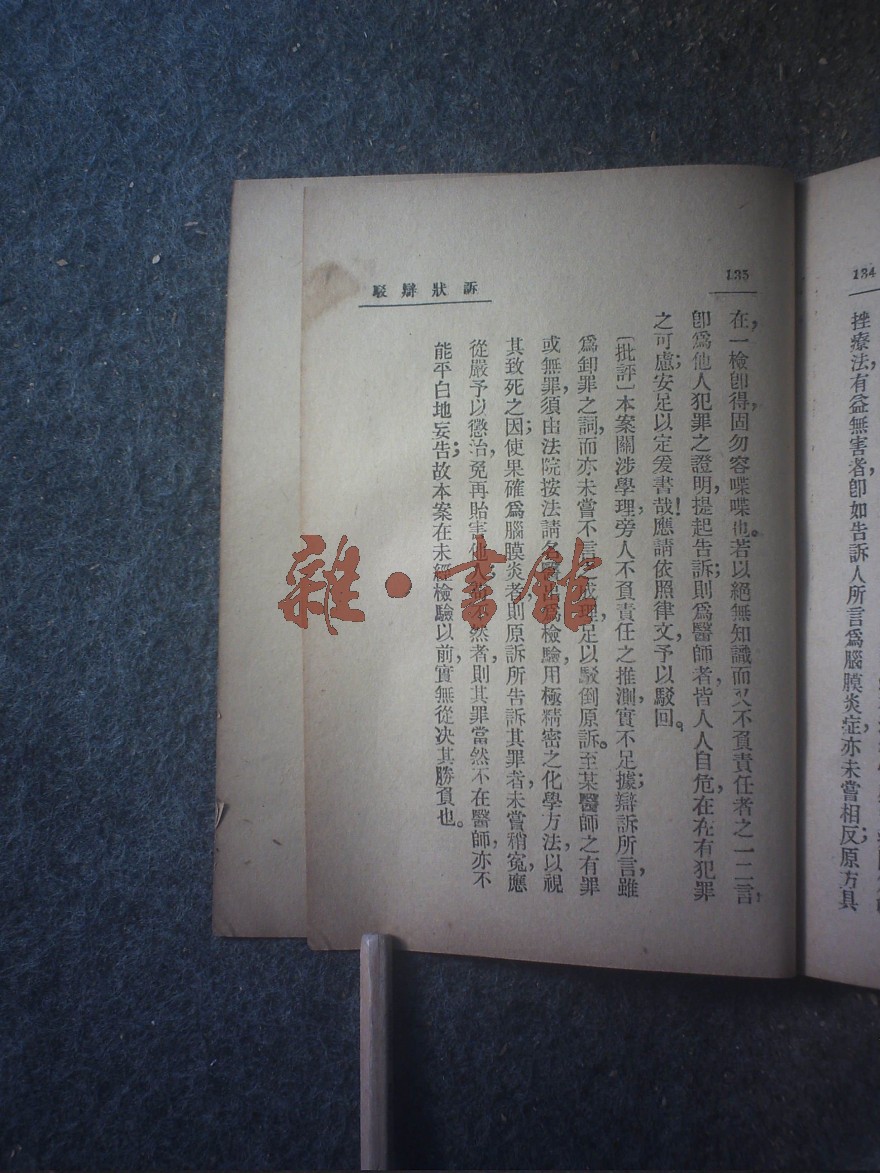 134
挫療法,有益無害者,卽如告訴人所言,爲腦膜炎症,亦未嘗相反;原方具
135
訴狀辯駁
在,一檢卽得,固勿容喋喋也。若以絕無知識而又不負責任者之一二言,
卽爲他人犯罪之證明,提起告訴;則爲醫師者,皆人人自危,在在有犯罪
之可慮;安足以定爰書哉!應請依照律文,予以駁回。
〔批評〕本案關涉學理,旁人不負責任之推測,實不足據;辯訴所言,雖
爲卸罪之詞,而亦未嘗不言之成理,足以駁倒原訴。至某醫師之有罪
或無罪,須由法院按法請名醫出爲檢驗,用極精密之化學方法,以視
其致死之因;使果確爲腦膜炎者,則原訴所告訴其罪者,未嘗稍冤,應
從嚴予以懲治,免再貽害他人;然者,則其罪當然不在醫師,亦不
能平白地妄告;故本案在未經檢驗以前,實無從決其勝負也。
雜·書館